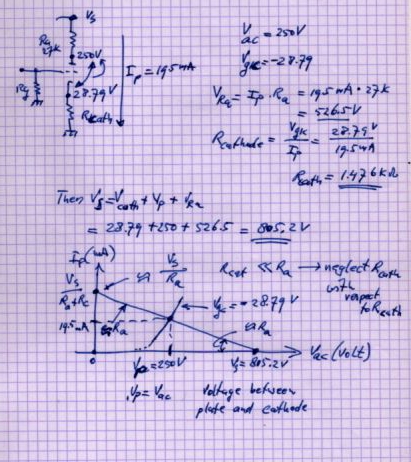 Vs
Ra
27K
250V
Ip = 19.5mA
28.79V
Rg
Rcath
Vac = 250V
Vgk = -28.79
VRa = Ip . Ra = 19.5mA · 27K
= 526.5V
Rcathode = Vgk/Ip = 28.79V/19.5mA
Rcath = 1.476 kΩ
Then Vs = Vcath + Vp + VRa
= 28.79 + 250 + 526.5 = 805.2V
Ip (mA)
Vs/(Ra+Rc)
≈ Vs/Ra
Rcat << Ra → neglect Rcath
with
respect
to Rcath
Vgc = -28.79V
19.5mA
≈Ra
≈Ra
0
Vp=250V
Vs=805.2V
Vac (Volt)
Vp = Vac
Voltage between
plate and cathode